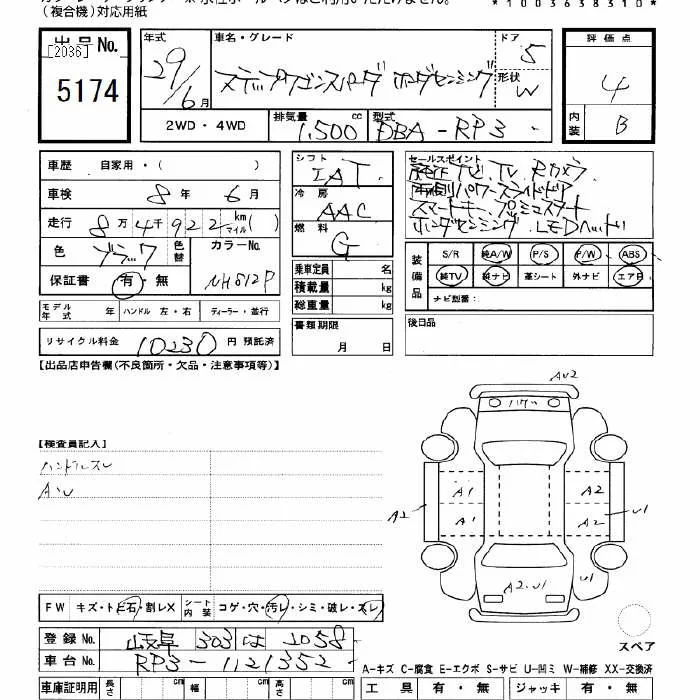 (複合機)対応用紙
*1003638310*
出品 No.
[2036]
5174
年式
29/6 月
車名・グレード
ステップワゴンスパーダ ホンダセンシング
ドア
5
形状
W
2WD・4WD
排気量
1,500 cc
型式
DBA-RP3
評価点
4
内装
B
車歴 自家用・( )
車検 8 年 6 月
走行 8万4千922 km マイル( )
色 ブラック 色替 カラーNo.
保証書 有・無 NH812P
モデル年式 年 ハンドル 左・右 ディーラー・並行
リサイクル料金 10230 円 預託済
シフト
IAT
冷房
AAC
燃料
G
乗車定員 名
積載量 kg
総重量 kg
書類期限
月 日
セールスポイント
純正ナビ TV Rカメラ
両側パワースライドドア
スマートキー プッシュスタート
ホンダセンシング LEDヘッドライト
装備品
S/R 純A/W P/S P/W ABS
純TV 純ナビ 革シート 外ナビ エアB
ナビ型番:
後日品
【出品店申告欄(不良箇所・欠品・注意事項等)】
【検査員記入】
ハンドルスレ
A・U
AU2
A1
A2
A2
A1
A2
U1
A2・U1
U1
スペア
FW キズ・トビ石・割レX シート内装 コゲ・穴・汚レ・シミ・破レ・スレ
登録 No. 岐阜 303 は 2058
車台 No. RP3-1121352
A-キズ C-腐食 E-エクボ S-サビ U-凹ミ W-補修 XX-交換済
車庫証明用 長さ cm 幅 cm 高さ cm
工具 有・無 ジャッキ 有・無